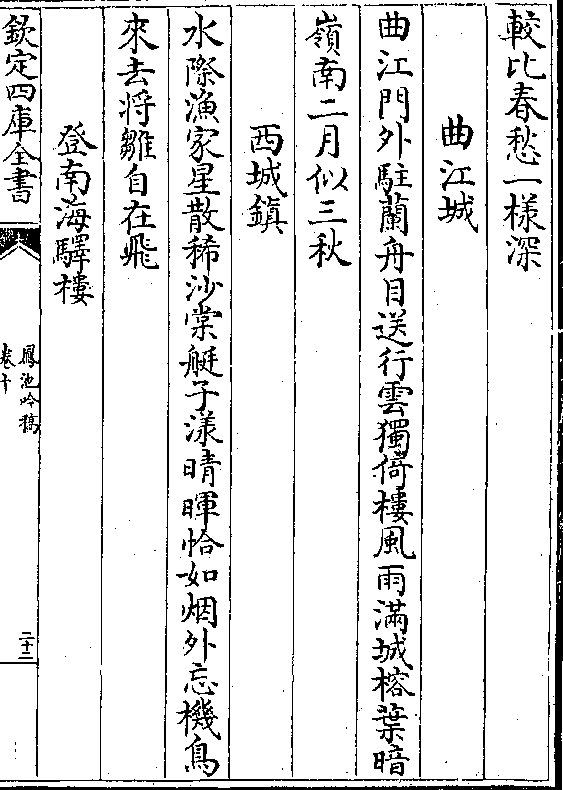 較比春愁一樣深
曲江城
曲江門外駐蘭舟目送行雲獨倚樓風雨滿城榕葉暗
嶺南二月似三秋
西城鎮
水際漁家星散稀沙棠艇子漾晴暉恰如烟外忘機鳥
來去将雛自在飛
登南海驛樓
欽定四庫全書
鳳池吟稿
卷十
二十二